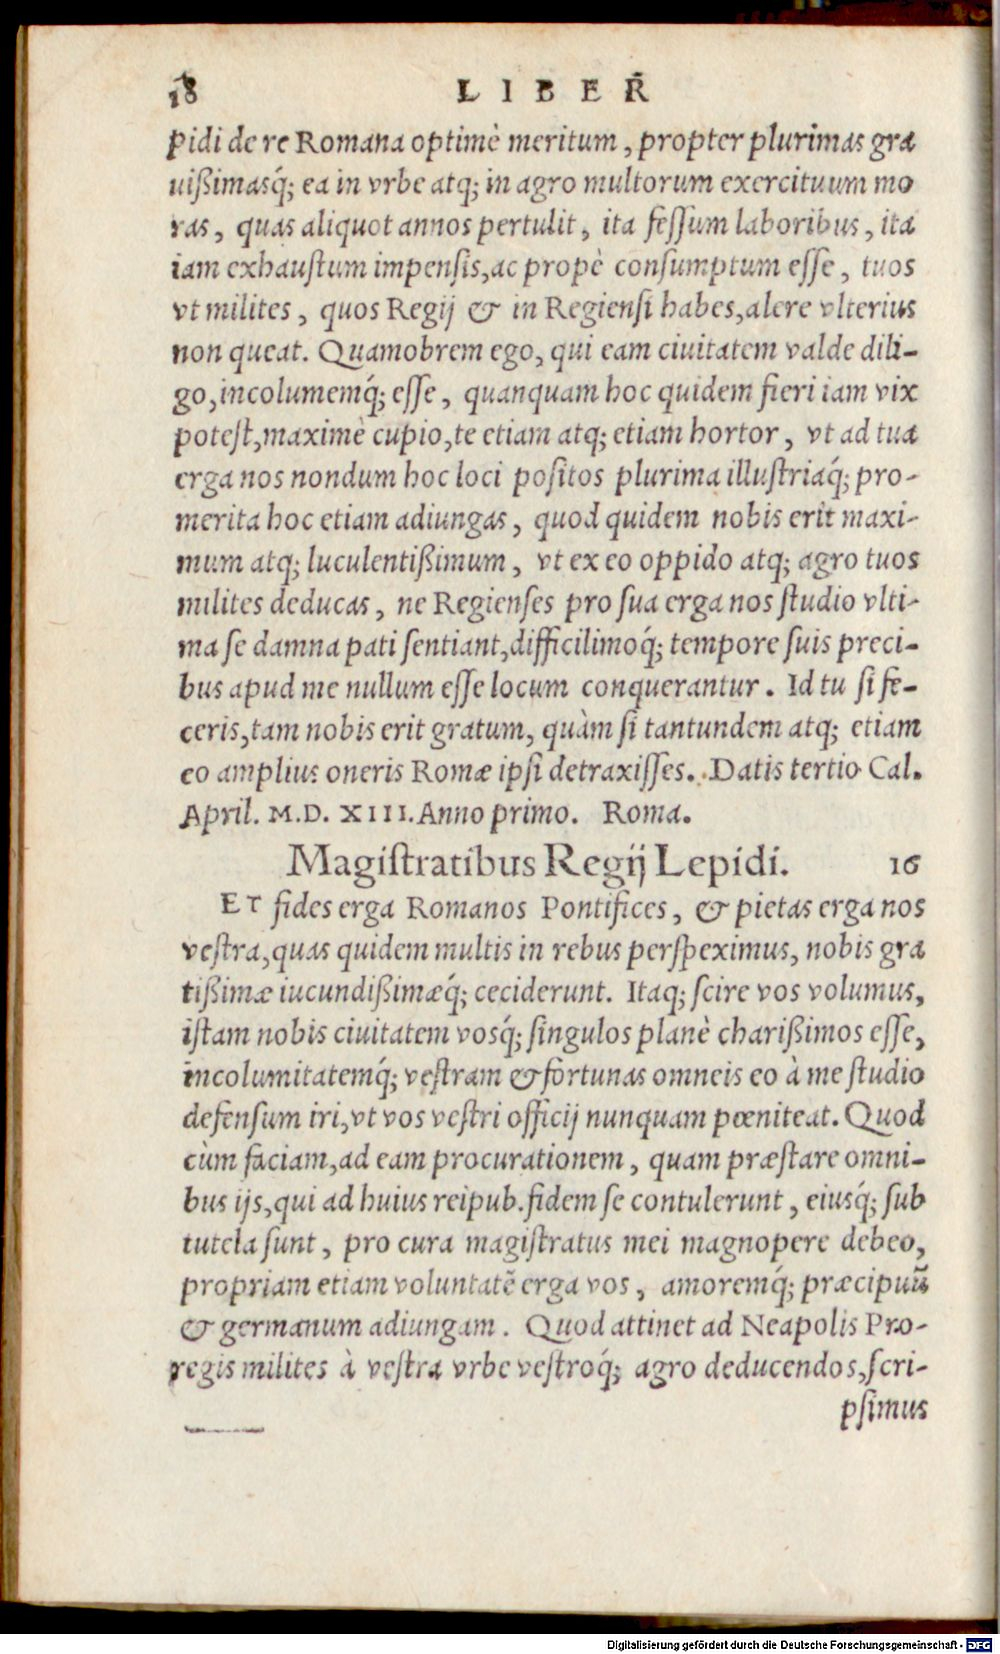 18 LIBER
pidi de re Romana optimè meritum, propter plurimas gra
uißimasq́; ea in vrbe atq; in agro multorum exercituum mo
ras, quas aliquot annos pertulit, ita feſſum laboribus, ita
iam exhauſtum impenſis, ac propè conſumptum eſſe, tuos
vt milites, quos Regij & in Regienſi habes, alere vlterius
non queat. Quamobrem ego, qui eam ciuitatem valde dili-
go, incolumemq́; eſſe, quanquam hoc quidem fieri iam vix
poteſt, maximè cupio, te etiam atq; etiam hortor, vt ad tua
erga nos nondum hoc loci poſitos plurima illuſtriaq́; pro-
merita hoc etiam adiungas, quod quidem nobis erit maxi-
mum atq; luculentißimum, vt ex eo oppido atq; agro tuos
milites deducas, ne Regienſes pro ſua erga nos ſtudio vlti-
ma ſe damna pati ſentiant, difficilimoq́; tempore ſuis preci-
bus apud me nullum eſſe locum conquerantur. Id tu ſi fe-
ceris, tam nobis erit gratum, quàm ſi tantundem atq; etiam
eo amplius oneris Romæ ipſi detraxiſſes. Datis tertio Cal.
April. M.D. XIII. Anno primo. Roma.
Magiſtratibus Regij Lepidi. 16
ET fides erga Romanos Pontifices, & pietas erga nos
veſtra, quas quidem multis in rebus perſpeximus, nobis gra
tißimæ iucundißimæq́; ceciderunt. Itaq; ſcire vos volumus,
iſtam nobis ciuitatem vosq́; ſingulos planè charißimos eſſe,
incolumitatemq́; veſtram & fortunas omneis eo à me ſtudio
defenſum iri, vt vos veſtri officij nunquam pœniteat. Quod
cùm faciam, ad eam procurationem, quam præſtare omni-
bus ijs, qui ad huius reipub. fidem ſe contulerunt, eiusq́; ſub
tutela ſunt, pro cura magiſtratus mei magnopere debeo,
propriam etiam voluntatẽ erga vos, amoremq́; præcipuũ
& germanum adiungam. Quod attinet ad Neapolis Pro-
regis milites à veſtra vrbe veſtroq́; agro deducendos, ſcri-
pſimus
Digitalisierung gefördert durch die Deutsche Forschungsgemeinschaft - DFG